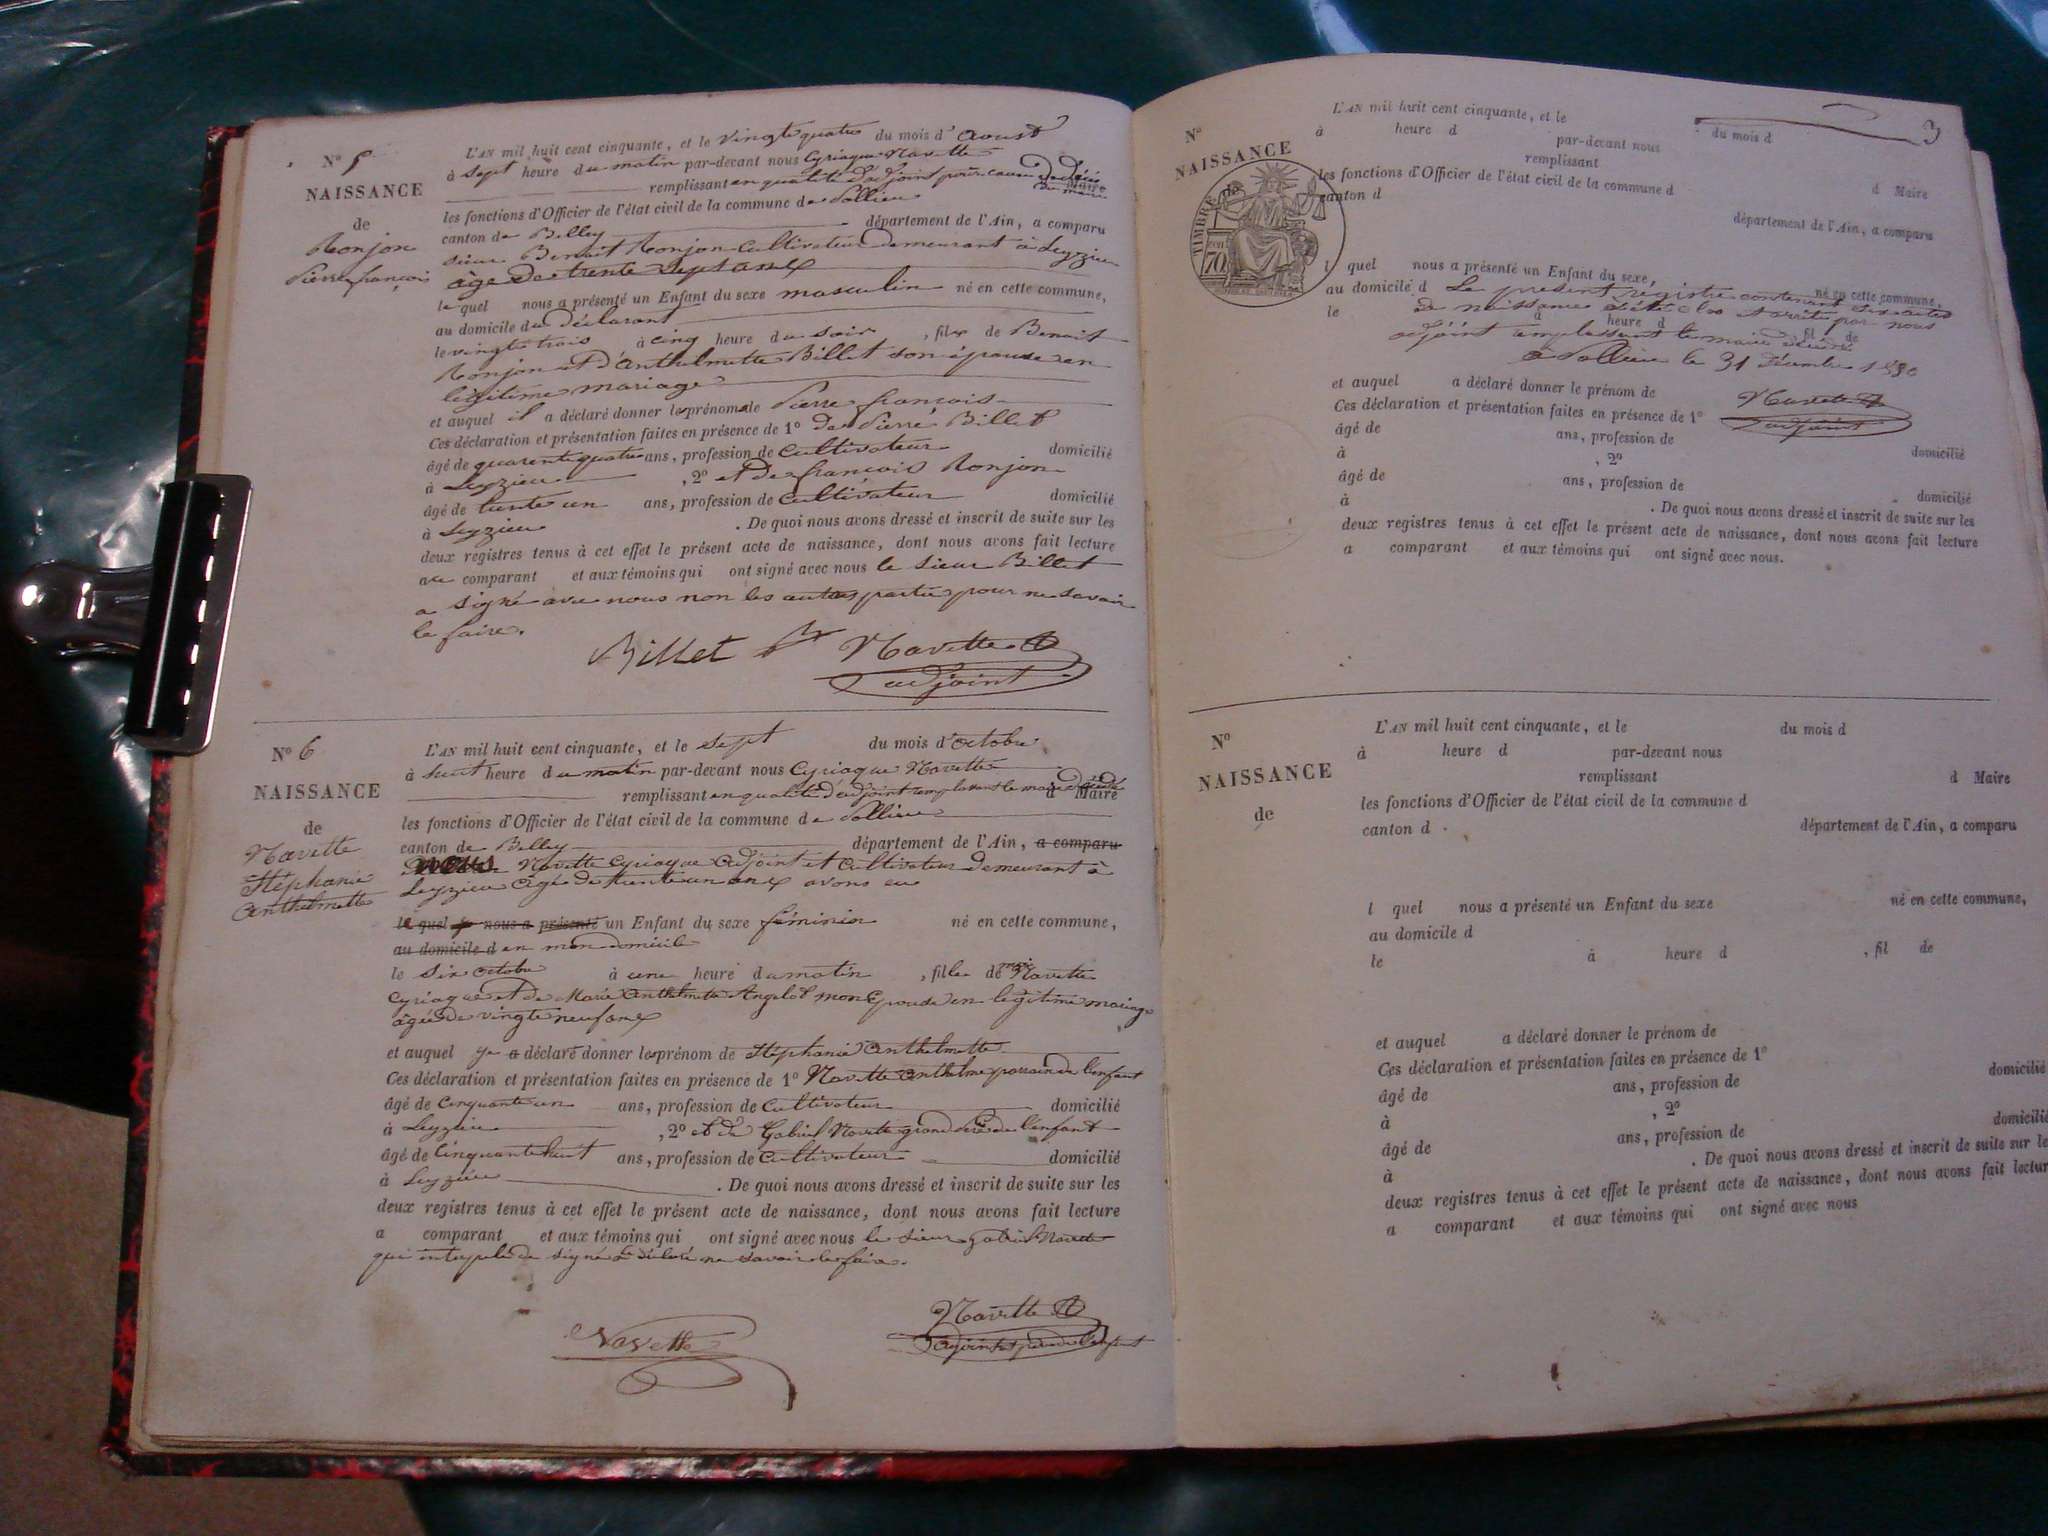 N° 5
NAISSANCE
de
Ronjon
Pierre françois
L'AN mil huit cent cinquante, et le vingte quatre du mois d'aoust
à sept heure du matin par-devant nous Cyriaque Navette
remplissant en qualité d'adjoint pour cause de décès du maire
les fonctions d'Officier de l'état civil de la commune de Pollieu
canton de Belley département de l'Ain, a comparu
sieur Benoit Ronjon cultivateur demeurant à Leyzieu
âgé de trente sept ans
le quel nous a présenté un Enfant du sexe masculin né en cette commune,
au domicile du déclarant
le vingte trois à cinq heure du soir, fils de Benoit
Ronjon et d'anthelmette Billet son épouse en
légitime mariage
et auquel il a déclaré donner les prénoms de Pierre françois
Ces déclaration et présentation faites en présence de 1° de Pierre Billet
âgé de quarente quatre ans, profession de cultivateur domicilié
à Leyzieu, 2° et de françois Ronjon
âgé de trente un ans, profession de cultivateur domicilié
à Leyzieu. De quoi nous avons dressé et inscrit de suite sur les
deux registres tenus à cet effet le présent acte de naissance, dont nous avons fait lecture
au comparant et aux témoins qui ont signé avec nous le sieur Billet
a signé avec nous non les autres parties pour ne savoir
le faire.
Billet Navette
adjoint
N° 6
NAISSANCE
de
Navette
Stéphanie
anthelmette
L'AN mil huit cent cinquante, et le sept du mois d'octobre
à huit heure du matin par-devant nous Cyriaque Navette
remplissant en qualité d'adjoint remplassant le maire décédé d Maire
les fonctions d'Officier de l'état civil de la commune de Pollieu
canton de Belley département de l'Ain, a comparu
nous Navette Cyriaque adjoint et cultivateur demeurant à
Leyzieu âgé de trente un ans avons eu
le quel nous a présenté un Enfant du sexe féminin né en cette commune,
au domicile d en mon domicile
le six octobre à une heure du matin, fille de moi Navette
Cyriaque et de Marie anthelmette Angelot mon épouse en légitime mariage
âgée de vingte neuf ans
et auquel je a déclaré donner les prénom de Stéphanie anthelmette
Ces déclaration et présentation faites en présence de 1° Navette anthelme parrain de l'enfant
âgé de cinquante un ans, profession de cultivateur domicilié
à Leyzieu, 2° et de Gabriel Navette grand père de l'enfant
âgé de cinquante huit ans, profession de cultivateur domicilié
à Leyzieu. De quoi nous avons dressé et inscrit de suite sur les
deux registres tenus à cet effet le présent acte de naissance, dont nous avons fait lecture
a comparant et aux témoins qui ont signé avec nous le sieur gabriel Navette
qui interpelé de signé a déclaré ne savoir le faire.
Navette
Navette
adjoint et père de l'enfant
3
N°
NAISSANCE
TIMBRE
70
L'AN mil huit cent cinquante, et le du mois d
à heure d par-devant nous
remplissant d Maire
les fonctions d'Officier de l'état civil de la commune d
canton d département de l'Ain, a comparu
l quel nous a présenté un Enfant du sexe, né en cette commune,
au domicile d Le présent registre contenant six actes
de naissance a été clos et arrêté par nous
le à heure d fil de
adjoint remplassant le maire décédé
a Pollieu le 31 décembre 1850
et auquel a déclaré donner le prénom de
Navette
adjoint
Ces déclaration et présentation faites en présence de 1°
âgé de ans, profession de domicilié
à , 2°
âgé de ans, profession de domicilié
à . De quoi nous avons dressé et inscrit de suite sur les
deux registres tenus à cet effet le présent acte de naissance, dont nous avons fait lecture
a comparant et aux témoins qui ont signé avec nous.
N°
NAISSANCE
de
L'AN mil huit cent cinquante, et le du mois d
à heure d par-devant nous
remplissant d Maire
les fonctions d'Officier de l'état civil de la commune d
canton d département de l'Ain, a comparu
l quel nous a présenté un Enfant du sexe né en cette commune,
au domicile d
le à heure d , fil de
et auquel a déclaré donner le prénom de
Ces déclaration et présentation faites en présence de 1°
âgé de ans, profession de domicilié
à , 2°
âgé de ans, profession de domicilié
à . De quoi nous avons dressé et inscrit de suite sur le
deux registres tenus à cet effet le présent acte de naissance, dont nous avons fait lectur
a comparant et aux témoins qui ont signé avec nous